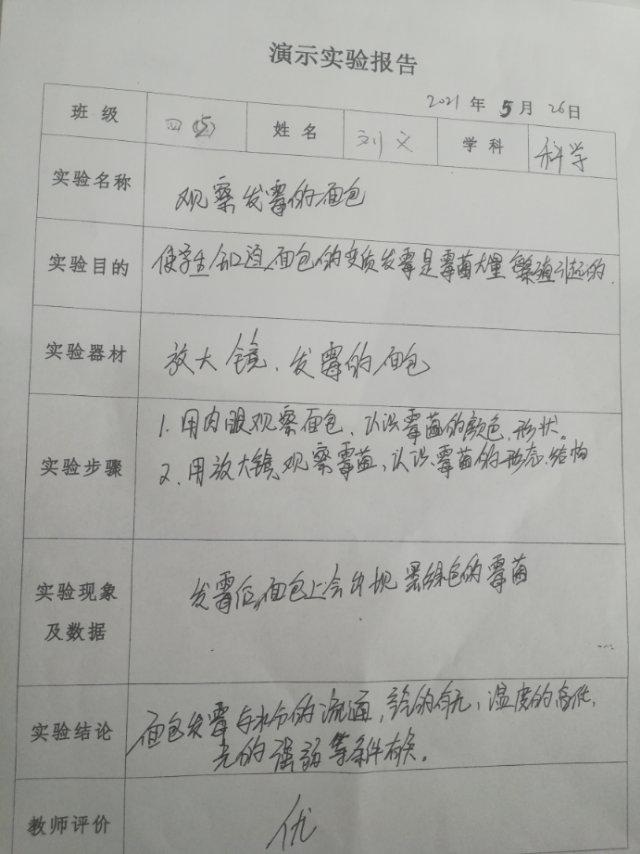 演示实验报告
2021年5月26日
班级 四(5) 姓名 刘文 学科 科学
实验名称 观察发霉的面包
实验目的 使学生知道面包的变质发霉是霉菌大量繁殖引起的.
实验器材 放大镜、发霉的面包
实验步骤 1. 用肉眼观察面包、认识霉菌的颜色、形状。
2. 用放大镜观察霉菌,认识霉菌的形态、结构
实验现象及数据 发霉后,面包上会出现黑绿色的霉菌
实验结论 面包发霉与水分的流通,的有无、温度的高低、
光的强弱等条件有关。
教师评价 优